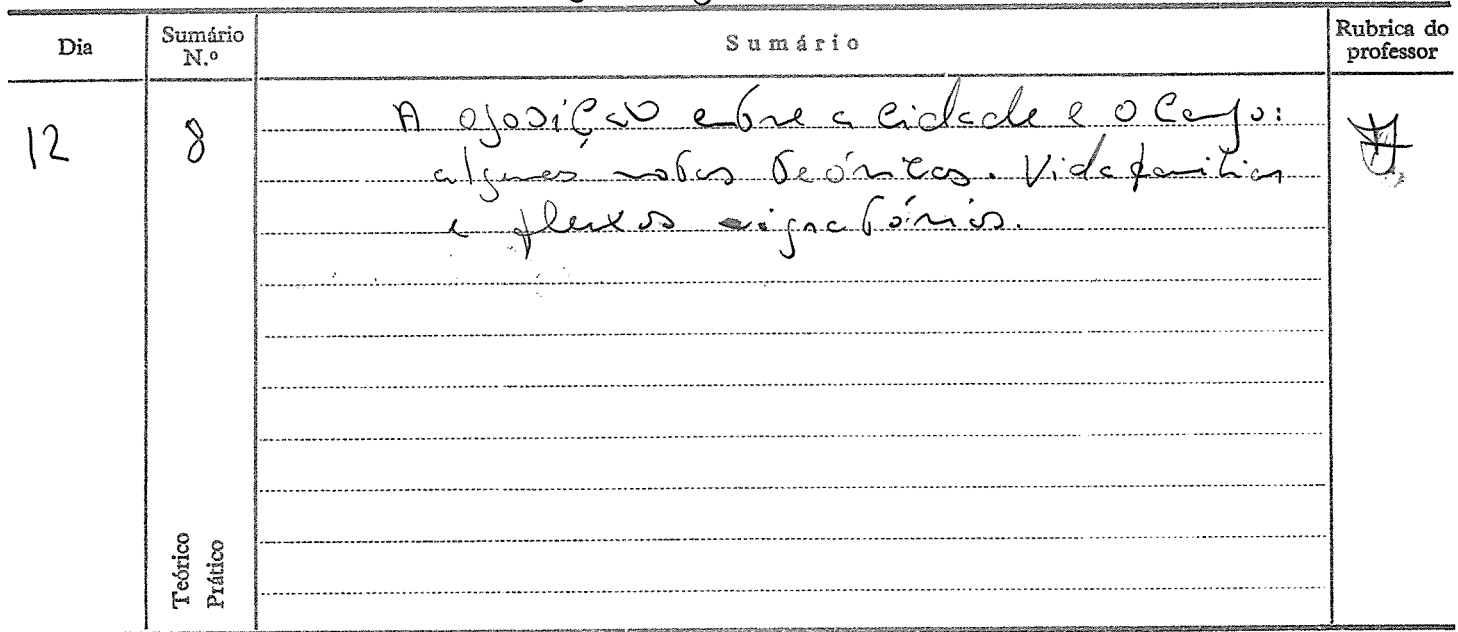 Dia
Sumário N.º
Sumário
Rubrica do professor
12
8
A oposição entre a cidade e o campo:
algumas notas teóricas. Vida familiar
e fluxos migratórios.
Teórico
Prático